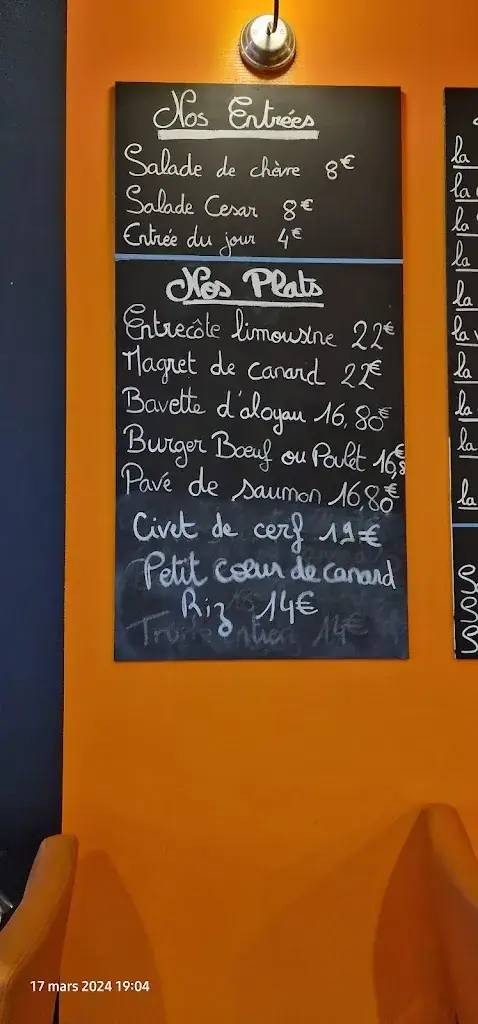 Nos Entrées
Salade de chèvre 8€
Salade Cesar 8€
Entrée du jour 4€
Nos Plats
Entrecôte limousine 22€
Magret de canard 22€
Bavette d'aloyau 16,80€
Burger Bœuf ou Poulet 16,8€
Pavé de saumon 16,80€
Civet de cerf 19€
Petit cœur de canard
Riz 14€
14€
la
la
la
la
la
la
la
la
la
la
17 mars 2024 19:04